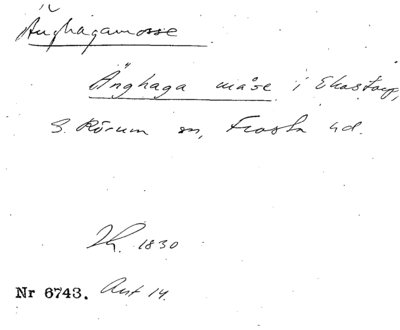 Änghagamosse
Änghaga måse i Ekastorp,
S. Rörum sn, Frosta hd.
1830
Nr 6743. Avst 14.